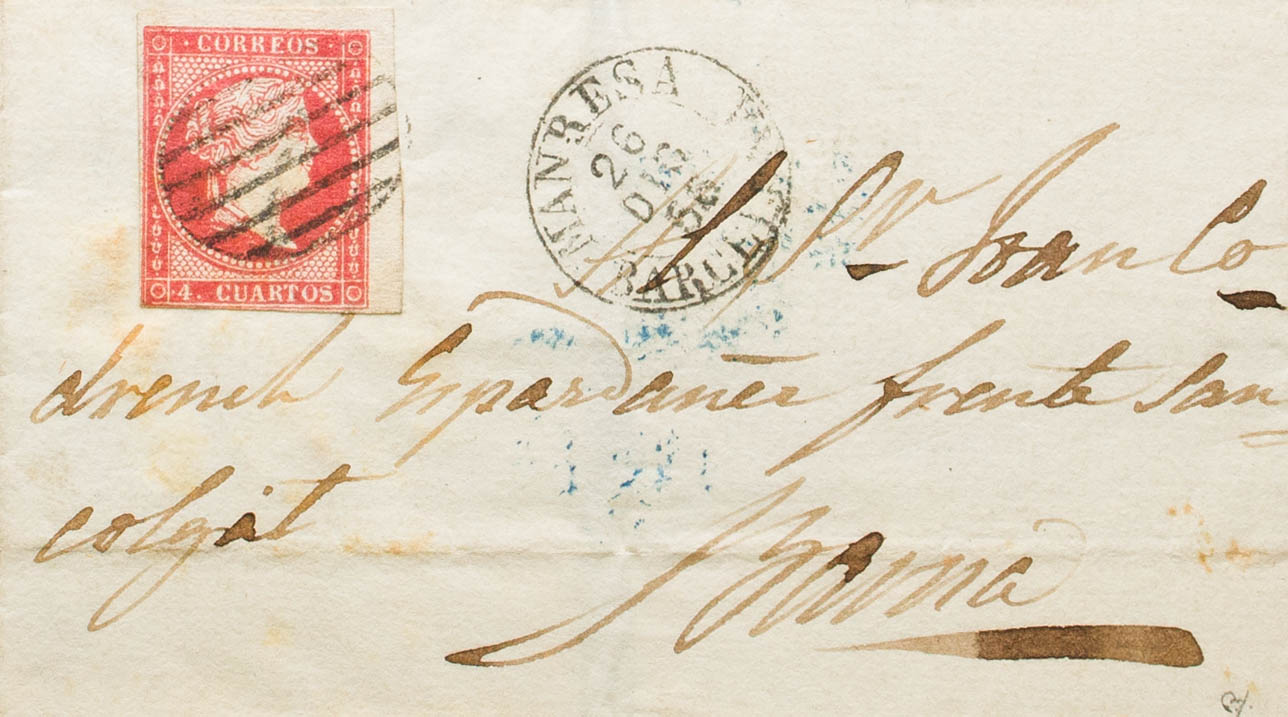 CORREOS
4. CUARTOS
MANRESA
26
DIC
56
BARCEL
A Sr Juan Co
drench Espardañer frente San
colgat
Barna